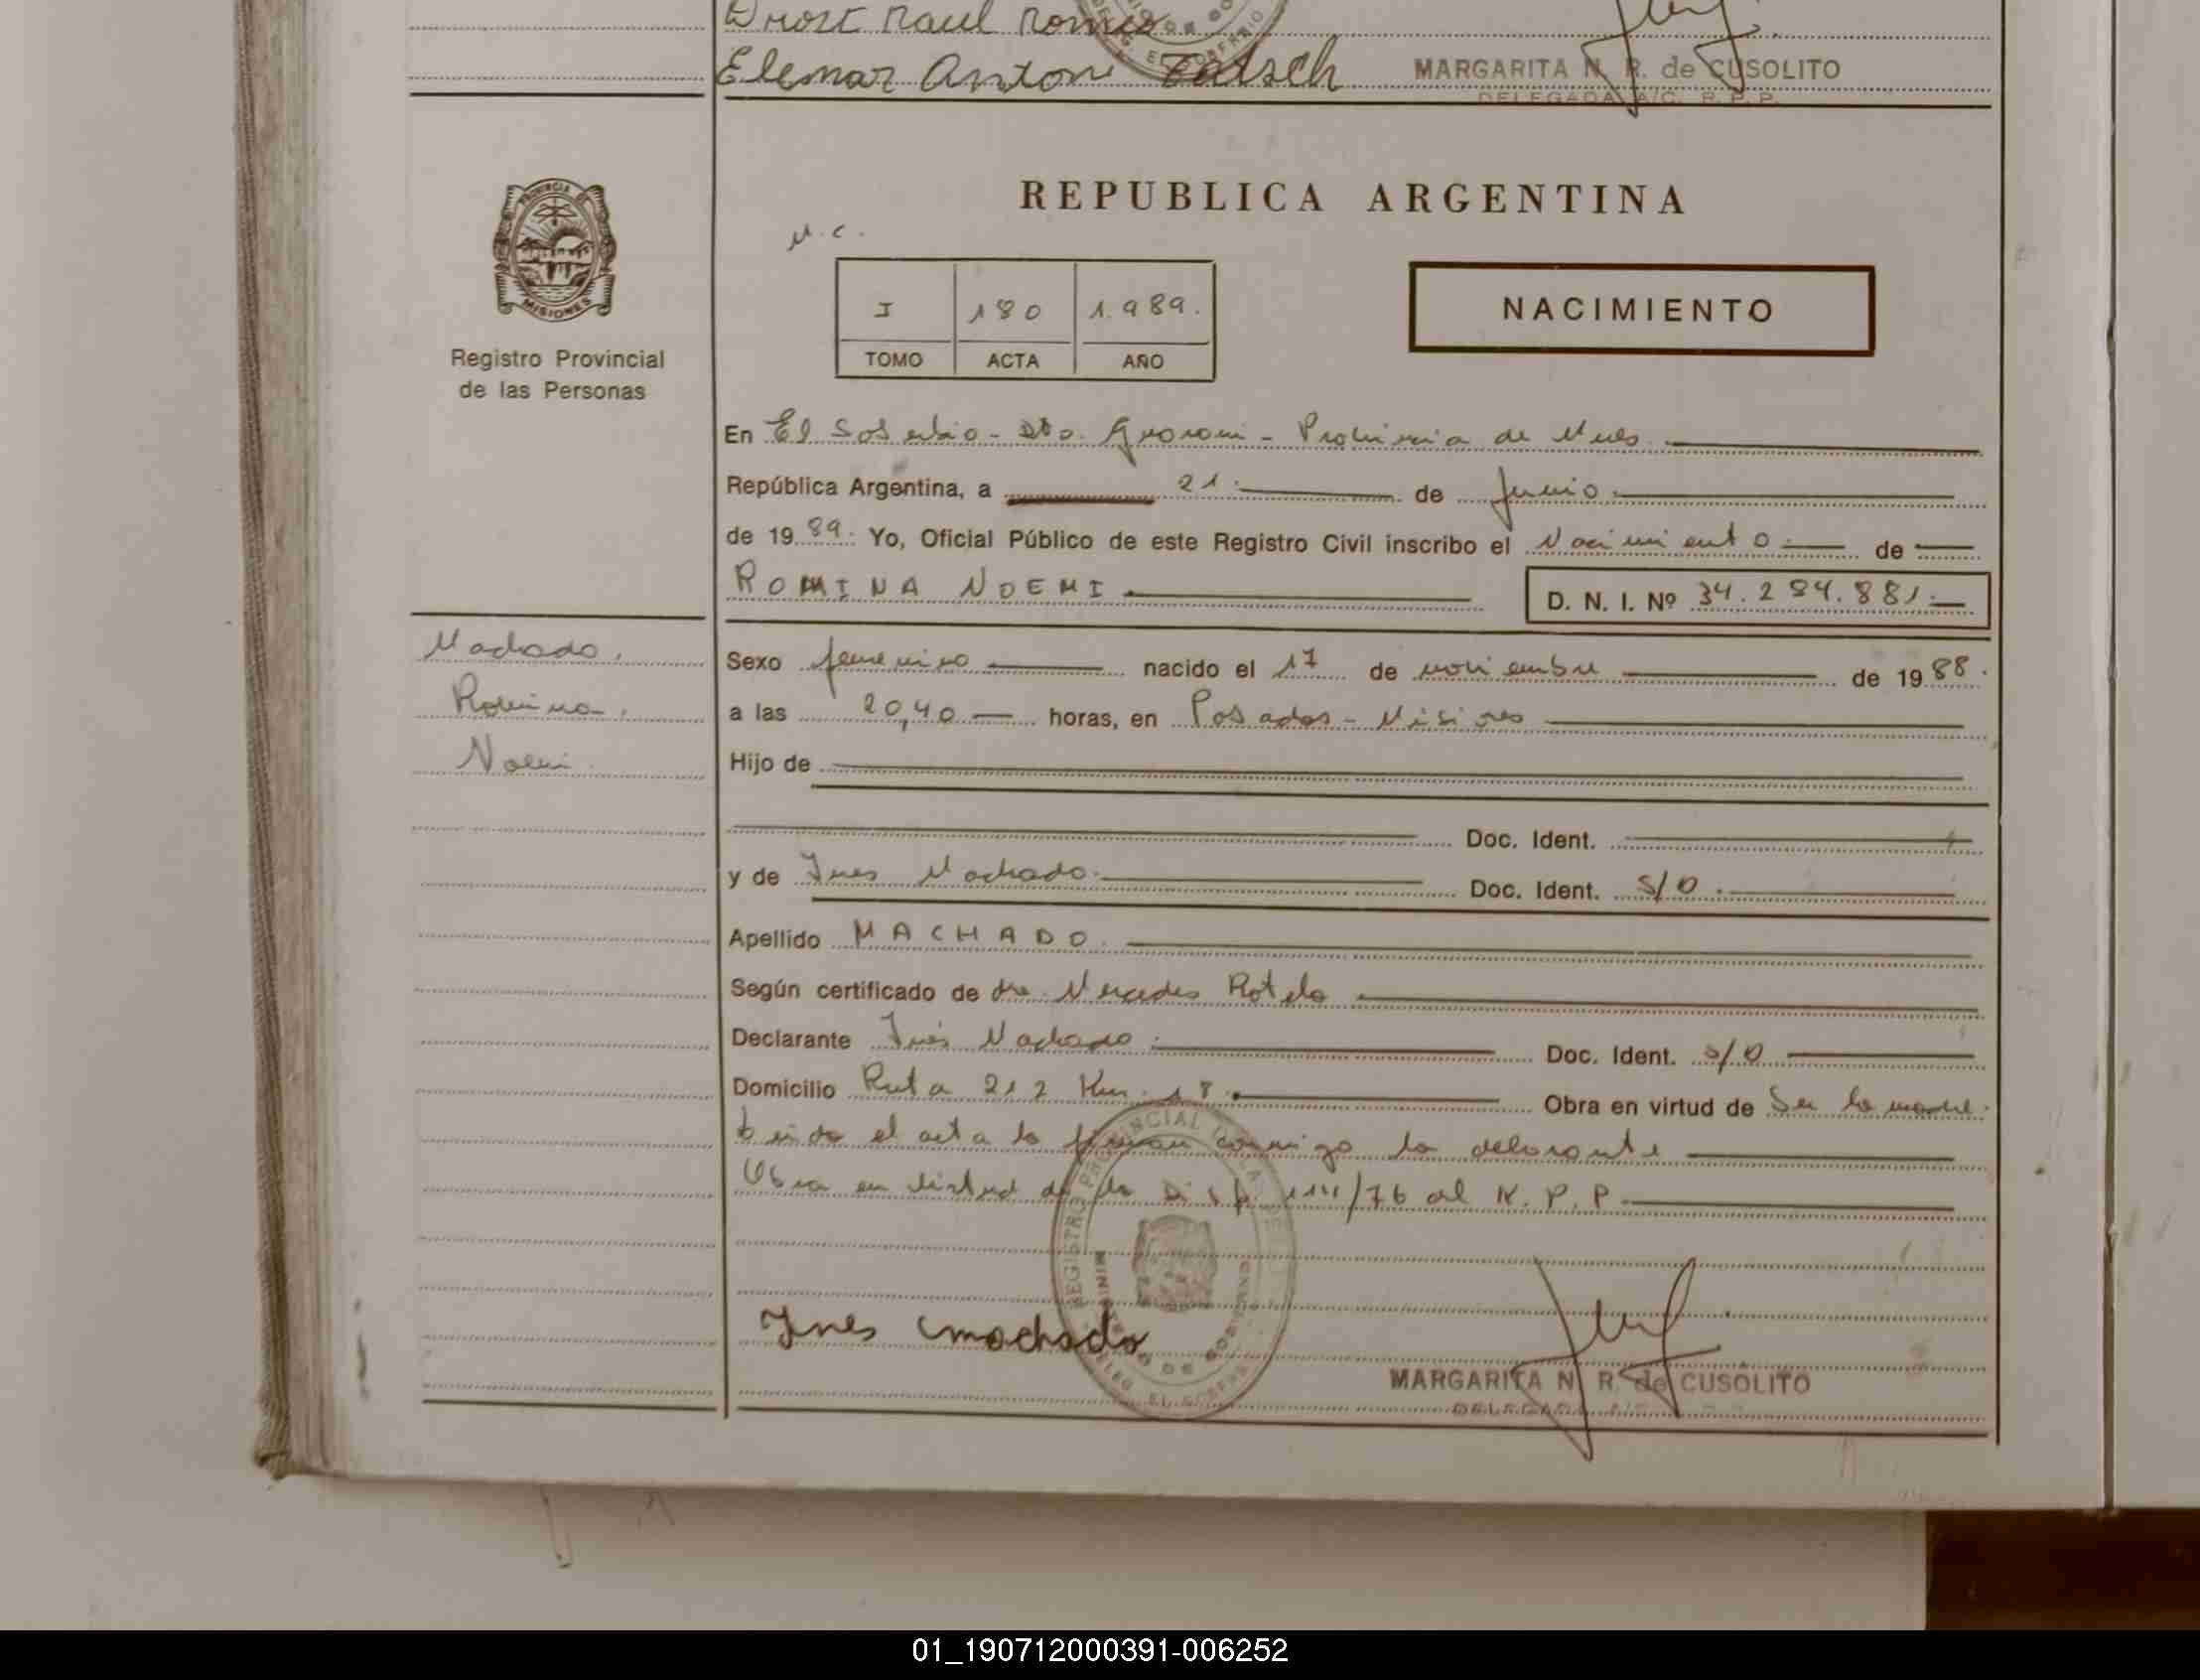 Drost Raul Romeo
Elemar Anton Tatsch
MARGARITA N. R. de CUSOLITO
DELEGADA A/C. R. P. P.
PROVINCIA
MISIONES
Registro Provincial
de las Personas
REPUBLICA ARGENTINA
M.C.
I 180 1.989.
TOMO ACTA AÑO
NACIMIENTO
En El Soberbio - Dto. Guarani - Provincia de Mnes
República Argentina, a 21 de Junio
de 1989. Yo, Oficial Público de este Registro Civil inscribo el Nacimiento de
ROMINA NOEMI
D. N. I. Nº 34.284.881.
Machado.
Romina.
Noemi.
Sexo femenino nacido el 17 de noviembre de 1988.
a las 20,40 horas, en Posadas - Misiones
Hijo de
Doc. Ident.
y de Ines Machado. Doc. Ident. S/D.
Apellido MACHADO.
Según certificado de dra. Mercedes Rotela
Declarante Inés Machado. Doc. Ident. S/D
Domicilio Ruta 212 Km. 18. Obra en virtud de Ser la madre.
el acta la firman conmigo la
Obra en virtud de la Disp. /76 del R. P. P.
REGISTRO PROVINCIAL DE LA
MINISTERIO DE GOBIERNO
DELEG. EL SOBERBIO
Ines Machado
MARGARITA N. R. de CUSOLITO
DELEGADA
01_190712000391-006252